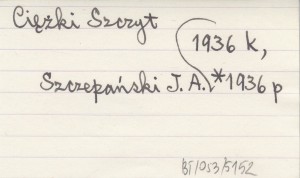 Ciężki Szczyt
1936 k,
Szczepański J. A. *1936 p
BT/053/5152